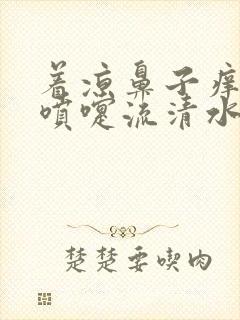 着凉鼻子痒
喷嚏流清水
楚楚要喫肉